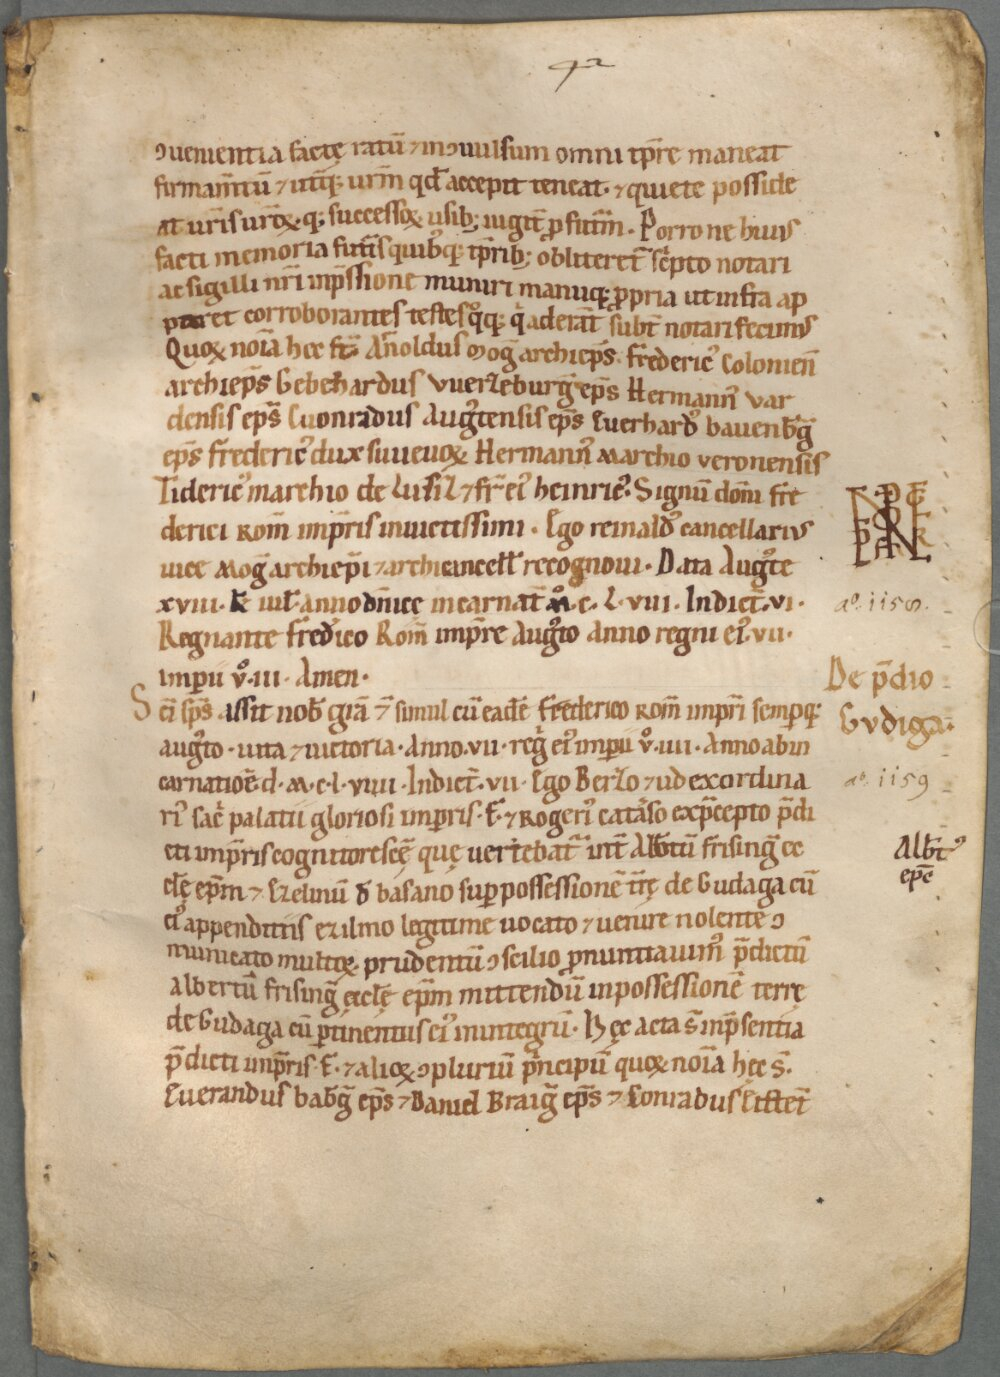 42
ↄuenientia factę ratū ⁊ inↄuulsum omni tp̄re maneat
firmam̄tū ⁊ utq̄; urm̄ qd̄ accepit teneat · ⁊ quiete posside
at ur̄is ur̄oꝝ q; successoꝝ usib; iugit̄ ꝓfutm̄ · Porro ne huius
facti memoria futis̄ quibꝰq; tp̄rib; obliteret̄ sc̄pto notari
ac sigilli nr̄i inp̄ssione muniri manuq; ꝓpria ut infra ap
paret corroborantes testes qͦq; q̄ aderāt subt̄ notari fecimus
Quoꝝ noīa hec st̄ Ar̄noldus moḡ archiep̄s · frederic̓ Colonien̄
archiep̄s Gebehardus vuerzeburḡ ep̄s Hermann̓ var
densis ep̄s Cuonradus Augꝰtensis ep̄s Euerhard̓ bauenbḡ
ep̄s frederic̓ dux suueuoꝝ Hermann̓ marchio veronensis
Tideric̓ marchio de Lusiz ⁊ fr̄ ei̓ heinric̓ · Signū dom̄i fre
derici Rom̄ imp̄ris inuictissimi · Ego reinald̓ cancellarius
uice moḡ archiep̄i ⁊ archicancell̄ recognoui · Data Augꝰte
xviii · k̄ iul̄ · anno dn̄ice incarnat̄ · m̊ · c · L · viii · Indict̄ · vi ·
Regnante fredico Rom̄ imp̄re Augꝰto Anno regni ei̓ · vii ·
imperii v̊ · iii · Amen ·
a͞o. 1158.
De p̄dio
Gudiga·
Sc̄i sp̄s assit nob̄ gr̄a ⁊ simul cū eadē frederico Rom̄ imp̄ri semꝑq;
augꝰto · uita ⁊ uictoria · Anno · vii · reḡ ei̓ imperii v̊ · iiii · Anno ab in
carnatioē d̄ · m · c · l · viiii · Indict̄ · vii · Ego Berzo ⁊ iudex ordina
ri̓ sac̄ palatii gloriosi imp̄ris · F · ⁊ Rogeri̓ cataso ex p̄cepto p̄di
a͞o. 1159
cti imp̄ris cognitores cē̄ quę uertebat̄ int̄ Albtū frisinḡ ec
clē ep̄m ⁊ Ezelinū d̄ basano suꝑ possessionē tr̄ę de Gudaga cū
Albt̓
epc̄
ei̓ appenditiis ezilmo legitime uocato ⁊ uenire nolente ↄ
municato multoꝝ prudentū ↄscilio ꝓnuntiauim̓ p̄dictū
albertū frisinḡ ecclę̄ ep̄m mittendū in possessionē terrę
de Gudaga cū ꝑtinentiis ei̓ in integrū · Hęc acta s̄ in p̄sentia
p̄dicti imp̄ris · F · ⁊ alioꝝ ↄpluriū p̄ncipū quoꝝ noīa hęc s̄ ·
Euerandus bab̄ḡ ep̄s ⁊ Daniel Braiḡ ep̄s ⁊ Conradus Eistet̄